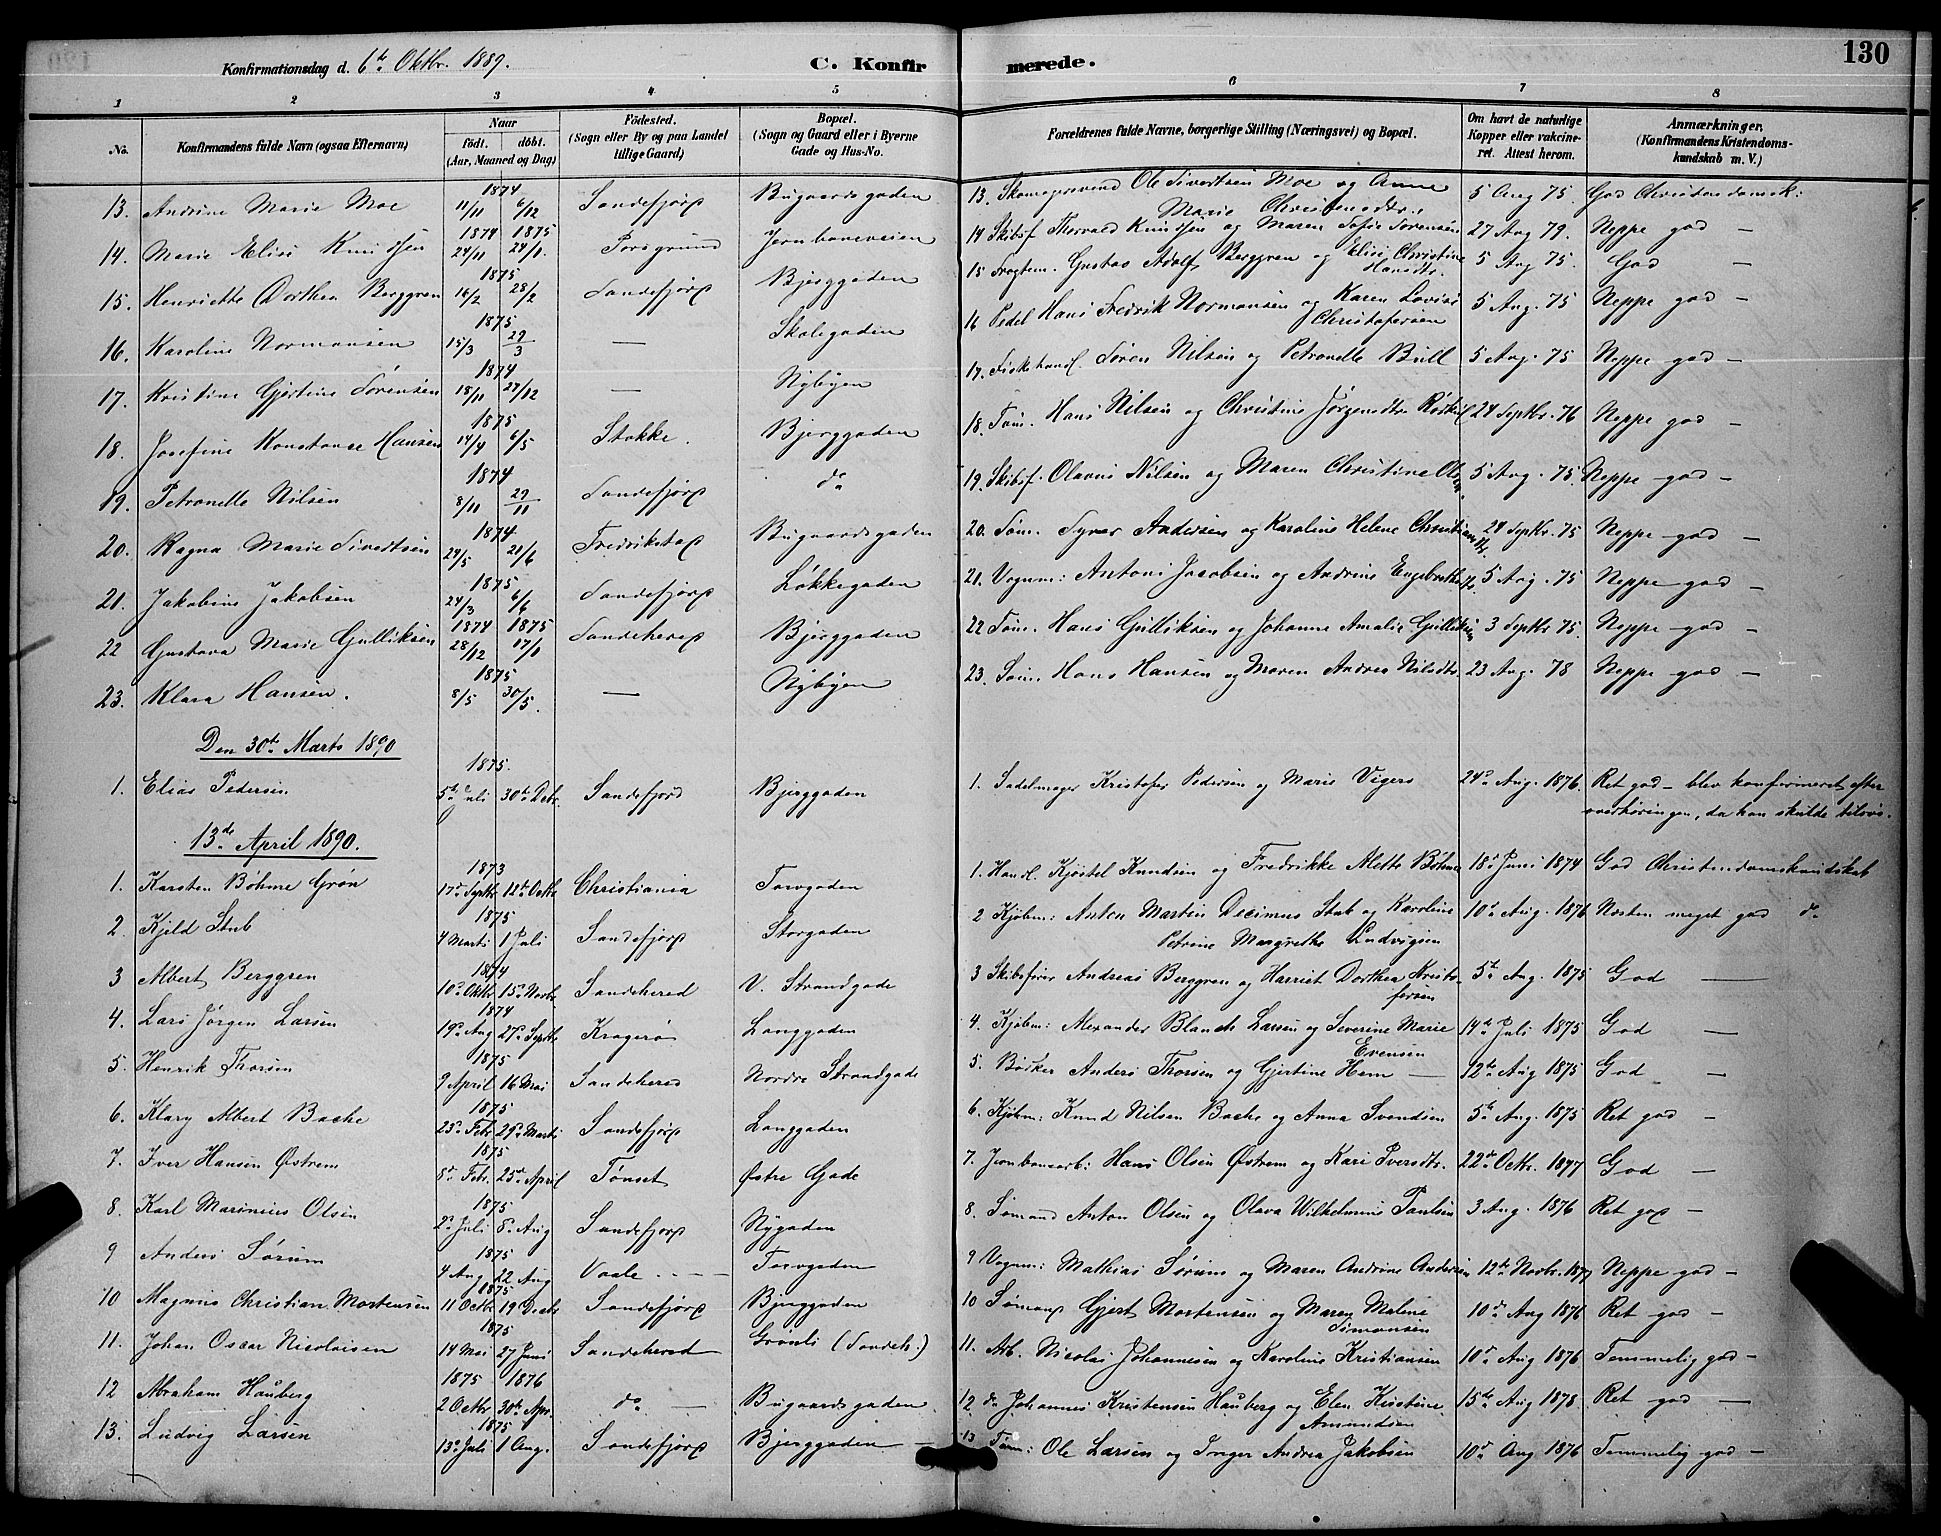 130
Konfirmationsdag d. 6te Oktbr. 1889. C. Konfirmerede.
1 2 3 4 5 6 7 8
No. Konfirmandens fulde Navn (ogsaa Efternavn) Naar födt. döbt. (Aar, Maaned og Dag) Födested. (Sogn eller By og paa Landet tillige Gaard) Bopæl. (Sogn og Gaard eller i Byerne Gade og Hus-No. Forældrenes fulde Navne, borgerlige Stilling (Næringsvei) og Bopæl. Om havt de naturlige Kopper eller vakcineret. Attest herom. Anmærkninger. (Konfirmandens Kristendomskundskab m. V.)
13. Andrine Marie Moe 1874 11/11 6/12 Sandefjord Bugaardsgaden 13. Ole Sivertsen Moe og Anne Marie Christensdtr. 5 Aug 75. God Christendomsk:
14. Marie Elise Knudsen 1874 24/11 1875 24/1 Porsgrund Jernbaneveien 14 Skibsf. Thorvald Knudsen og Maren Sofie Sorensen 27 Aug 79. Neppe god —
15. Henriette Dorthea Berggren 1875 16/2 28/2 Sandefjord Bjerggaden 15 Fragtem. Gustav Adolf Berggren og Elise Christine Hansdtr. 5 Aug 75. God —
16. Karoline Normansen 1875 15/3 29/3 — Skolegaden 16 Pedel Hans Fredrik Normansen og Karen Lovise Christofersen 5 Aug. 75 Neppe god —
17. Kristine Gjertine Sörensen 1874 18/11 27/12 — Nybyen 17. Fiskehandl. Sören Nilsen og Petronelle Bull 5 Aug. 75 Neppe god —
18. Josefine Konstanse Hansen 1875 14/4 6/5 Stokke. Bjerggaden 18. Töm. Hans Nilsen og Christine Jörgensdtr. 24 Septbr. 76 Neppe god —
19. Petronelle Nilsen 1874 8/11 29/11 Sandefjord do 19. Skibsf. Olavus Nilsen og Maren Christine Olsen 5 Aug. 75. Neppe god —
20. Ragna Marie Sivertsen 1874 24/5 21/6 Fredrikstad Bugaardsgaden 20. Töm. Syver Andersen og Karoline Helene 24 Septbr. 75 Neppe god —
21. Jakobine Jakobsen 1875 24/3 6/6 Sandefjord Løkkegaden 21. Vognm: Antoni Jacobsen og Andrine 5 Aug. 75 Neppe god —
22 Gustava Marie Gulliksen 1874 28/12 1875 17/1 Sandeherred Bjerggaden 22 Töm. Hans Gulliksen og Johanne Amalie Gulliksen 3 Septbr 75. Neppe god —
23. Klara Hansen. 1875 8/5 30/5. — Nybyen 23. Söm. Hans Hansen og Maren Andrea Nilsdtr. 23 Aug. 78 Neppe god —
Den 30te Marts 1890
1. Elias Pedersen 1875. 5te Juli 30te Dcbr. Sandefjord Bjerggaden 1. Sadelmager Kristofer Pedersen og Marie Vigers 24de Aug. 1876. Ret god — blev konfirmeret efter overhöringen, da han skulde tilsös.
13de April 1890.
1. Karsten Böhme Grön 1873 17de Septbr. 12te Octbr Christiania Torvgaden 1. Handl. Kjöstel Knudsen og Fredrikke Alette Böhme 18de Juni 1874 God Christendomskundskab
2 Kjeld Stub 1875 4 Marts 1 Juli Sandefjord Storgaden 2 Kjöbm: Anton Martin Decimus Stub og Karoline Petrine Margrethe Ludvigsen 10de Aug. 1876 Næsten meget god do
3 Albert Berggren 1874 10de Oktbr. 15de Novbr. Sandeherred V. Strandgade 3 Skibsförer Andreas Berggren og Harriet Dorthea Kristofersen 5te Aug. 1875 God —
4. Lars Jörgen Larsen 1874 19de Aug 27de Septbr Kragerø Langgaden 4. Kjöbm: Alexander Blanch Larsen og Severine Marie Evensen 14de Juli 1875 God —
5. Henrik Thorsen 1875 9 April 16 Mai Sandeherred Nordre Strandgade 5. Bödker Anders Thorsen og Gjertine Hem — 12te Aug 1875 God —
6. Klary Albert Bache 1875 23de Febr. 29de Marts Sandefjord Langgaden 6. Kjöbm: Knud Nilsen Bache og Anna Svendsen 5te Aug. 1875 Ret god —
7. Iver Hansen Østrem 1875 8de Febr. 25de April Tønset Østre Gade 7. Jernbanearb: Hans Olsen Østrem og Kari Iversdtr. 22de Octbr. 1877 God —
8. Karl Marinius Olsen 1875 2de Juli 8de Aug Sandefjord Nygaden 8. Sömand Anton Olsen og Olava Wilhelmine Paulsen 3 Aug. 1876 Ret god —
9 Anders Sörum 1875 4 Aug 22 Aug Vaale — Torvgaden 9 Vognm: Mathias Sörum og Maren Andrine Andersen 12te Novbr. 1877 Neppe god —
10 Magnus Christian Mortensen 1875 11 Octbr 19 Decbr Sandefjord Bjerggaden 10 Sömand Gjert Mortensen og Maren Malene Simonsen 10de Aug 1876 Ret god —
11. Johan Oscar Nicolaisen 1875 14 Mai 27 Juni Sandeherred Grönli (Sandeh.) 11. Arb. Nicolai Johannesen og Karoline Kristiansen 10de Aug 1876 Temmelig god —
12 Abraham Hauberg 1875 2 Octbr 1876 30te Apr. do — Bugaardsgaden 12 do Johannes Kristensen Hauberg og Elen Kirstine Amundsen 15de Aug 1878 Ret god —
13. Ludvig Larsen 1875 13de Juli 1 Aug. Sandefjord Bjerggaden — 13 Töm: Ole Larsen og Inger Andrea Jakobsen 10de Aug 1876 Temmelig god —